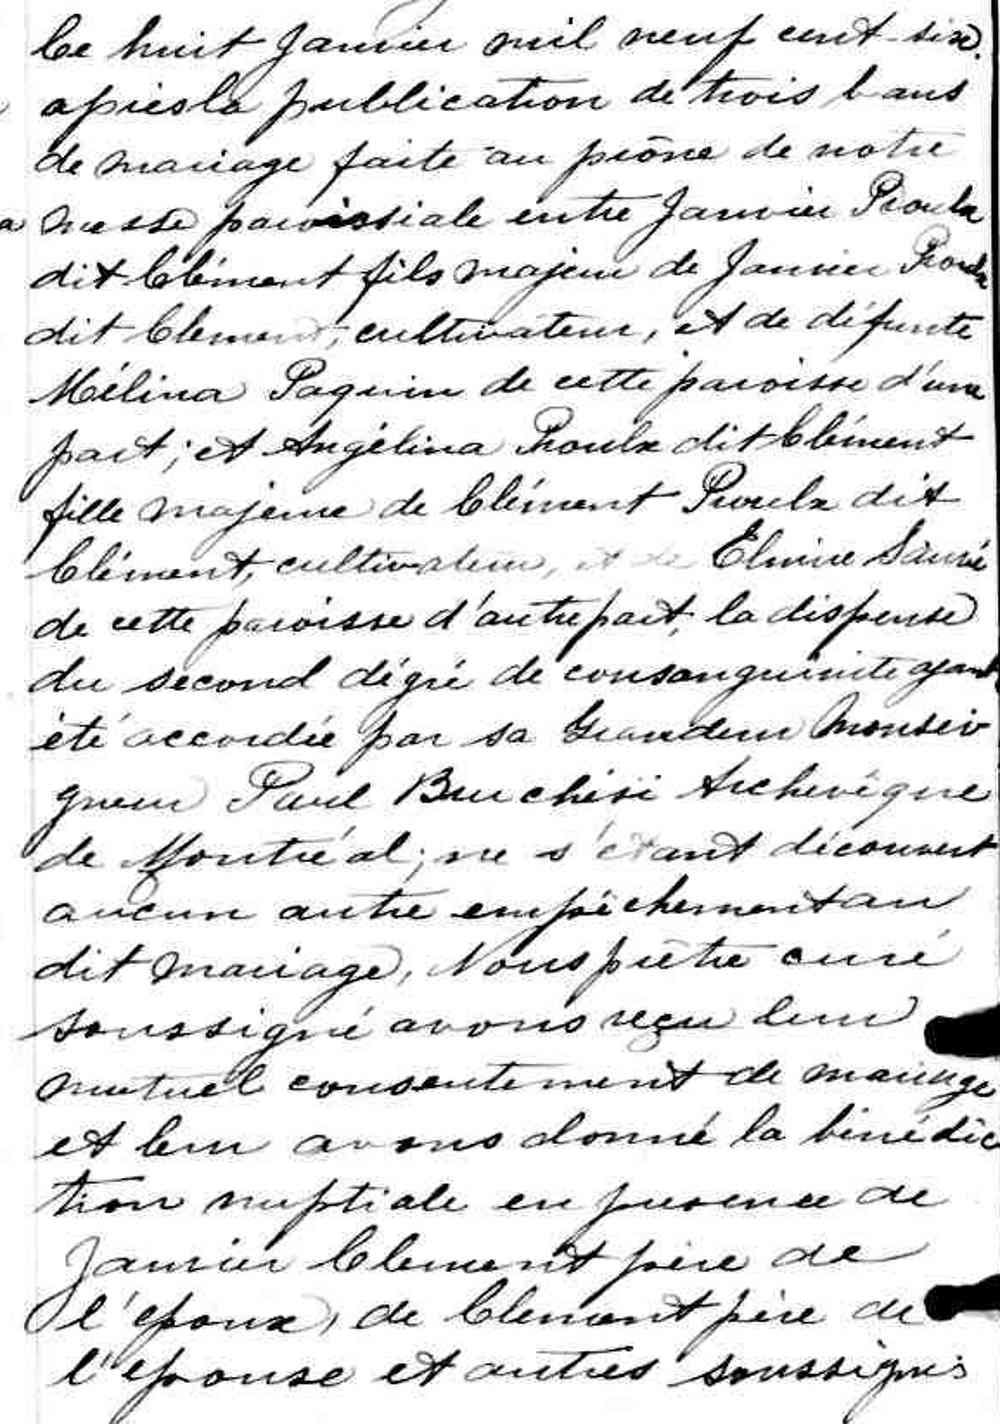 Le huit Janvier mil neuf cent-six.
après la publication de trois bans
de mariage faite au prône de notre
messe paroissiale entre Janvier Proulx
dit Clément fils majeur de Janvier Proulx
dit Clement, cultivateur, et de défunte
Mélina Paquin de cette paroisse d'une
part; et Angélina Proulx dit Clément
fille majeure de Clément Proulx dit
Clément, cultivateur, et de Elmire Sauvé
de cette paroisse d'autre part, la dispense
du second dégré de consanguinite ayant
été accordée par sa Grandeur Monsei
gneur Paul Bruchési Archevêque
de Montréal; ne s'étant découvert
aucun autre empêchement au
dit mariage, Nous prêtre curé
soussigné avons reçu leur
mutuel consentement de mariage
et leur avons donné la bénédic
tion nuptiale en presence de
Janvier Clement père de
l'epoux, de Clement père de
l'epouse et autres soussignés